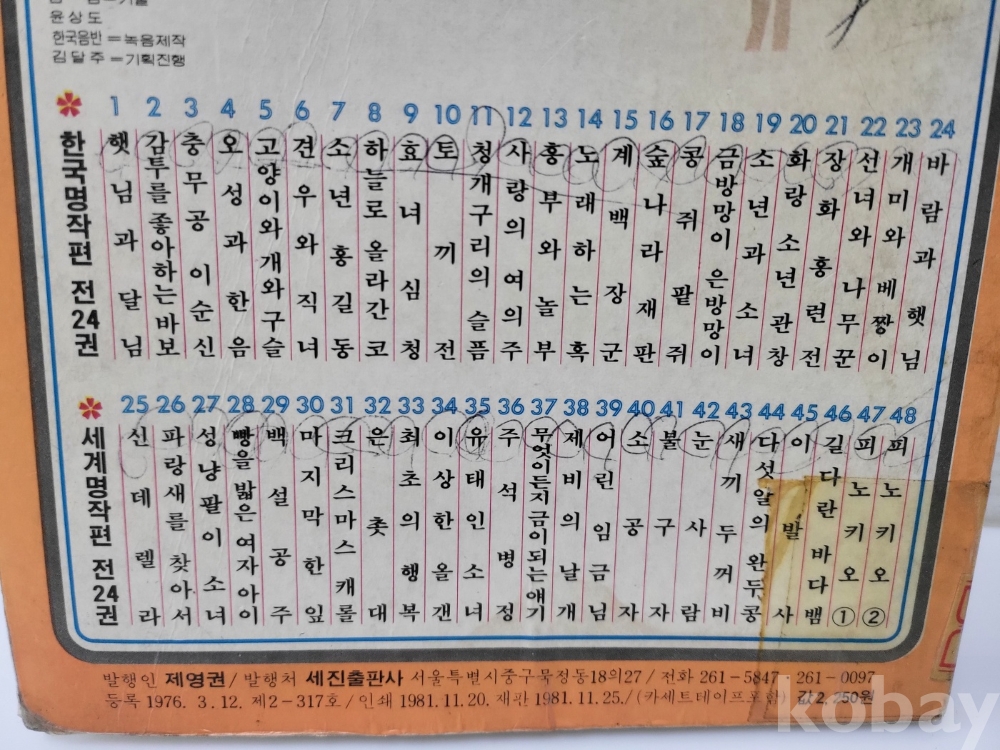 윤상도
한국음반=녹음제작
김달주=기획진행
한국명작편 전24권
1 햇님과달님
2 감투를좋아하는바보
3 충무공이순신
4 오성과한음
5 고양이와개와구슬
6 견우와직녀
7 소년홍길동
8 하늘로올라간코
9 효녀심청
10 토끼전
11 청개구리의슬픔
12 사랑의여의주
13 흥부와놀부
14 노래하는혹
15 계백장군
16 숲나라재판
17 콩쥐팥쥐
18 금방망이은방망이
19 소년과소녀
20 화랑소년관창
21 장화홍련전
22 선녀와나무꾼
23 개미와베짱이
24 바람과햇님
세계명작편 전24권
25 신데렐라
26 파랑새를찾아서
27 성냥팔이소녀
28 빵을밟은여자아이
29 백설공주
30 마지막한잎
31 크리스마스캐롤
32 은촛대
33 최초의행복
34 이상한올갠
35 유태인소녀
36 주석병정
37 무엇이든지금이되는얘기
38 제비의날개
39 어린임금님
40 소공자
41 불구자
42 눈사람
43 새끼두꺼비
44 다섯알의완두콩
45 이발사
46 길다란바다뱀
47 피노키오①
48 피노키오②
발행인 제영권/발행처 세진출판사 서울특별시중구묵정동18의27/전화 261-5847 261-0097
등록 1976. 3. 12. 제2-317호/인쇄 1981.11.20. 재판 1981.11.25./(카세트테이프포함) 값2,250원
kobay